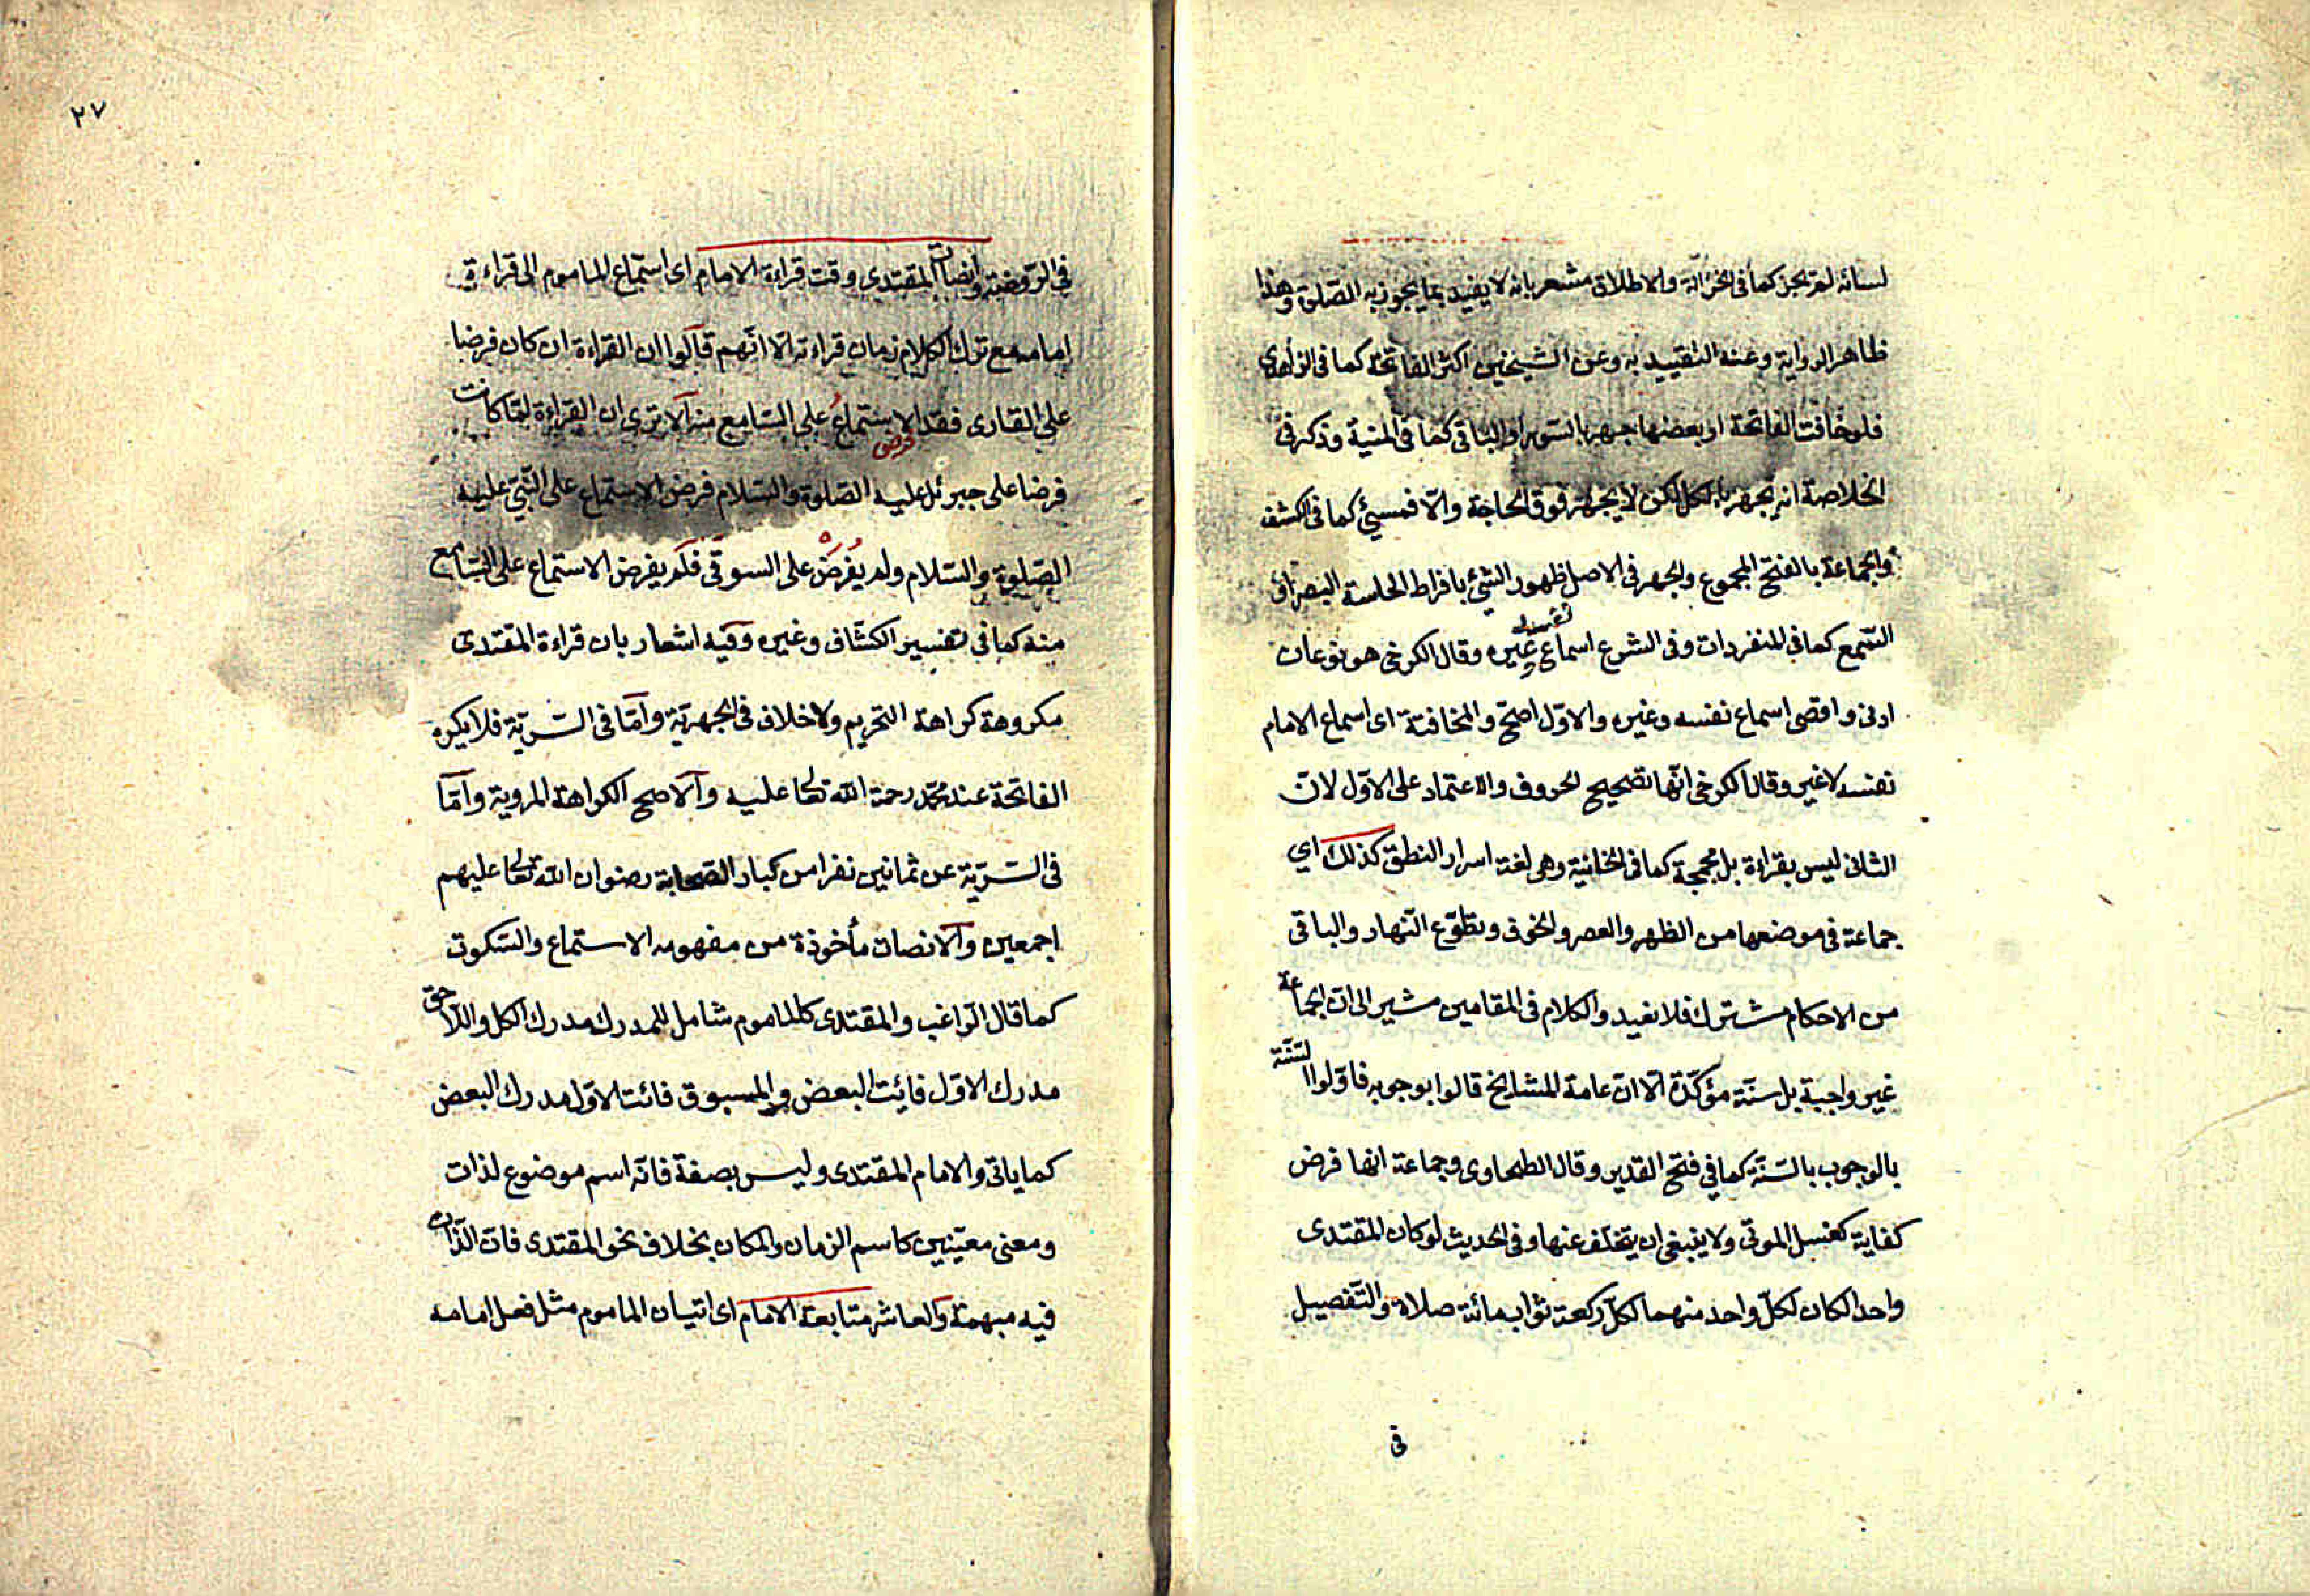 لسانه لم يجز كما في الخزانة والاطلاق مشعر بانه لا يفيد بما يجوز به الصلوة وهذا
ظاهر الرواية وعنه التقييد به وعن الشيخين اكثر الفاتحة كما في الزاهدي
فلو خافت الفاتحة او بعضها جهر بالسورة او الباقي كما في المنية وذكر في
الخلاصة انه يجهر بالكل لكن لا يجهر فوق الحاجة والّا فمسيئ كما في الكشف
والجماعة بالفتح المجموع والجهر في الاصل ظهور الشئ بافراط الحاسة البصر او
السّمع كما في المفردات وفي الشرع اسماع نفسه غيره وقال الكرخى هو نوعان
ادنى واقصى اسماع نفسه وغيره والاوّل اصحّ والمخافتة اى اسماع الامام
نفسه لا غير وقال الكرخى انّها تصحيح الحروف والاعتماد على الاوّل لانّ
الثانى ليس بقراءة بل مجمجة كما في الخانية وهى لغة اسرار النطق كذلك اي
جماعة في موضعها من الظهر والعصر والخوف وتطوّع النّهار والباقى
من الاحكام مشترك فلا نعيد والكلام في المقامين مشير الى انّ الجماعة
غير واجبة بل سنّة مؤكّدة الّا انّ عامة المشايخ قالوا بوجوبه فاوّلوا السّنّة
بالوجوب بالسّنّة كما في فتح القدير وقال الطحاوى وجماعة انها فرض
كفاية كغسل الموتى ولا ينبغى ان يتخلّف عنها وفى الحديث لو كان المقتدى
واحدا لكان لكلّ واحد منهما لكلّ ركعة ثواب مائة صلاة والتّفصيل
في
٢٧
في الرّوضة وانصات المقتدى وقت قراءة الامام اى استماع الماموم الى قراءة
امامه مع ترك الكلام زمان قراءته الّا انّهم قالوا ان القراءة ان كان فرضا
على القارى فقد فرض الاستماع على السّامع منه الا ترى ان القراءة لمّا كانت
فرضا على جبرئل عليه الصّلوة والسّلام فرض الاستماع على النّبيّ عليه
الصّلوة والسّلام ولم يفرض على السوقى فلم يفرض الاستماع على السّامع
منه كما في تفسير الكشّاف وغيره وفيه اشعار بان قراءة المقتدى
مكروهة كراهة التحريم ولا خلاف في الجهريّة وامّا في السّريّة فلا يكره
الفاتحة عند محمّد رحمة اللّه تعالى عليه والاصح الكراهة المروية وامّا
في السّريّة عن ثمانين نفرا من كبار الصّحابة رضوان اللّه تعالى عليهم
اجمعين والانصات مأخوذة من مفهومه الاستماع والسّكوت
كما قال الرّاغب والمقتدى كالماموم شامل للمدرك مدرك الكل واللّاحق
مدرك الاوّل فايت البعض والمسبوق فائت الاوّل مدرك البعض
كما ياتى والامام المقتدى وليس بصفة فانّه اسم موضوع لذات
ومعنى معيّنين كاسم الزمان والمكان بخلاف نحو المقتدى فانّ الذّات
فيه مبهمة والعاشر متابعة الامام اى اتيان الماموم مثل فعل امامه